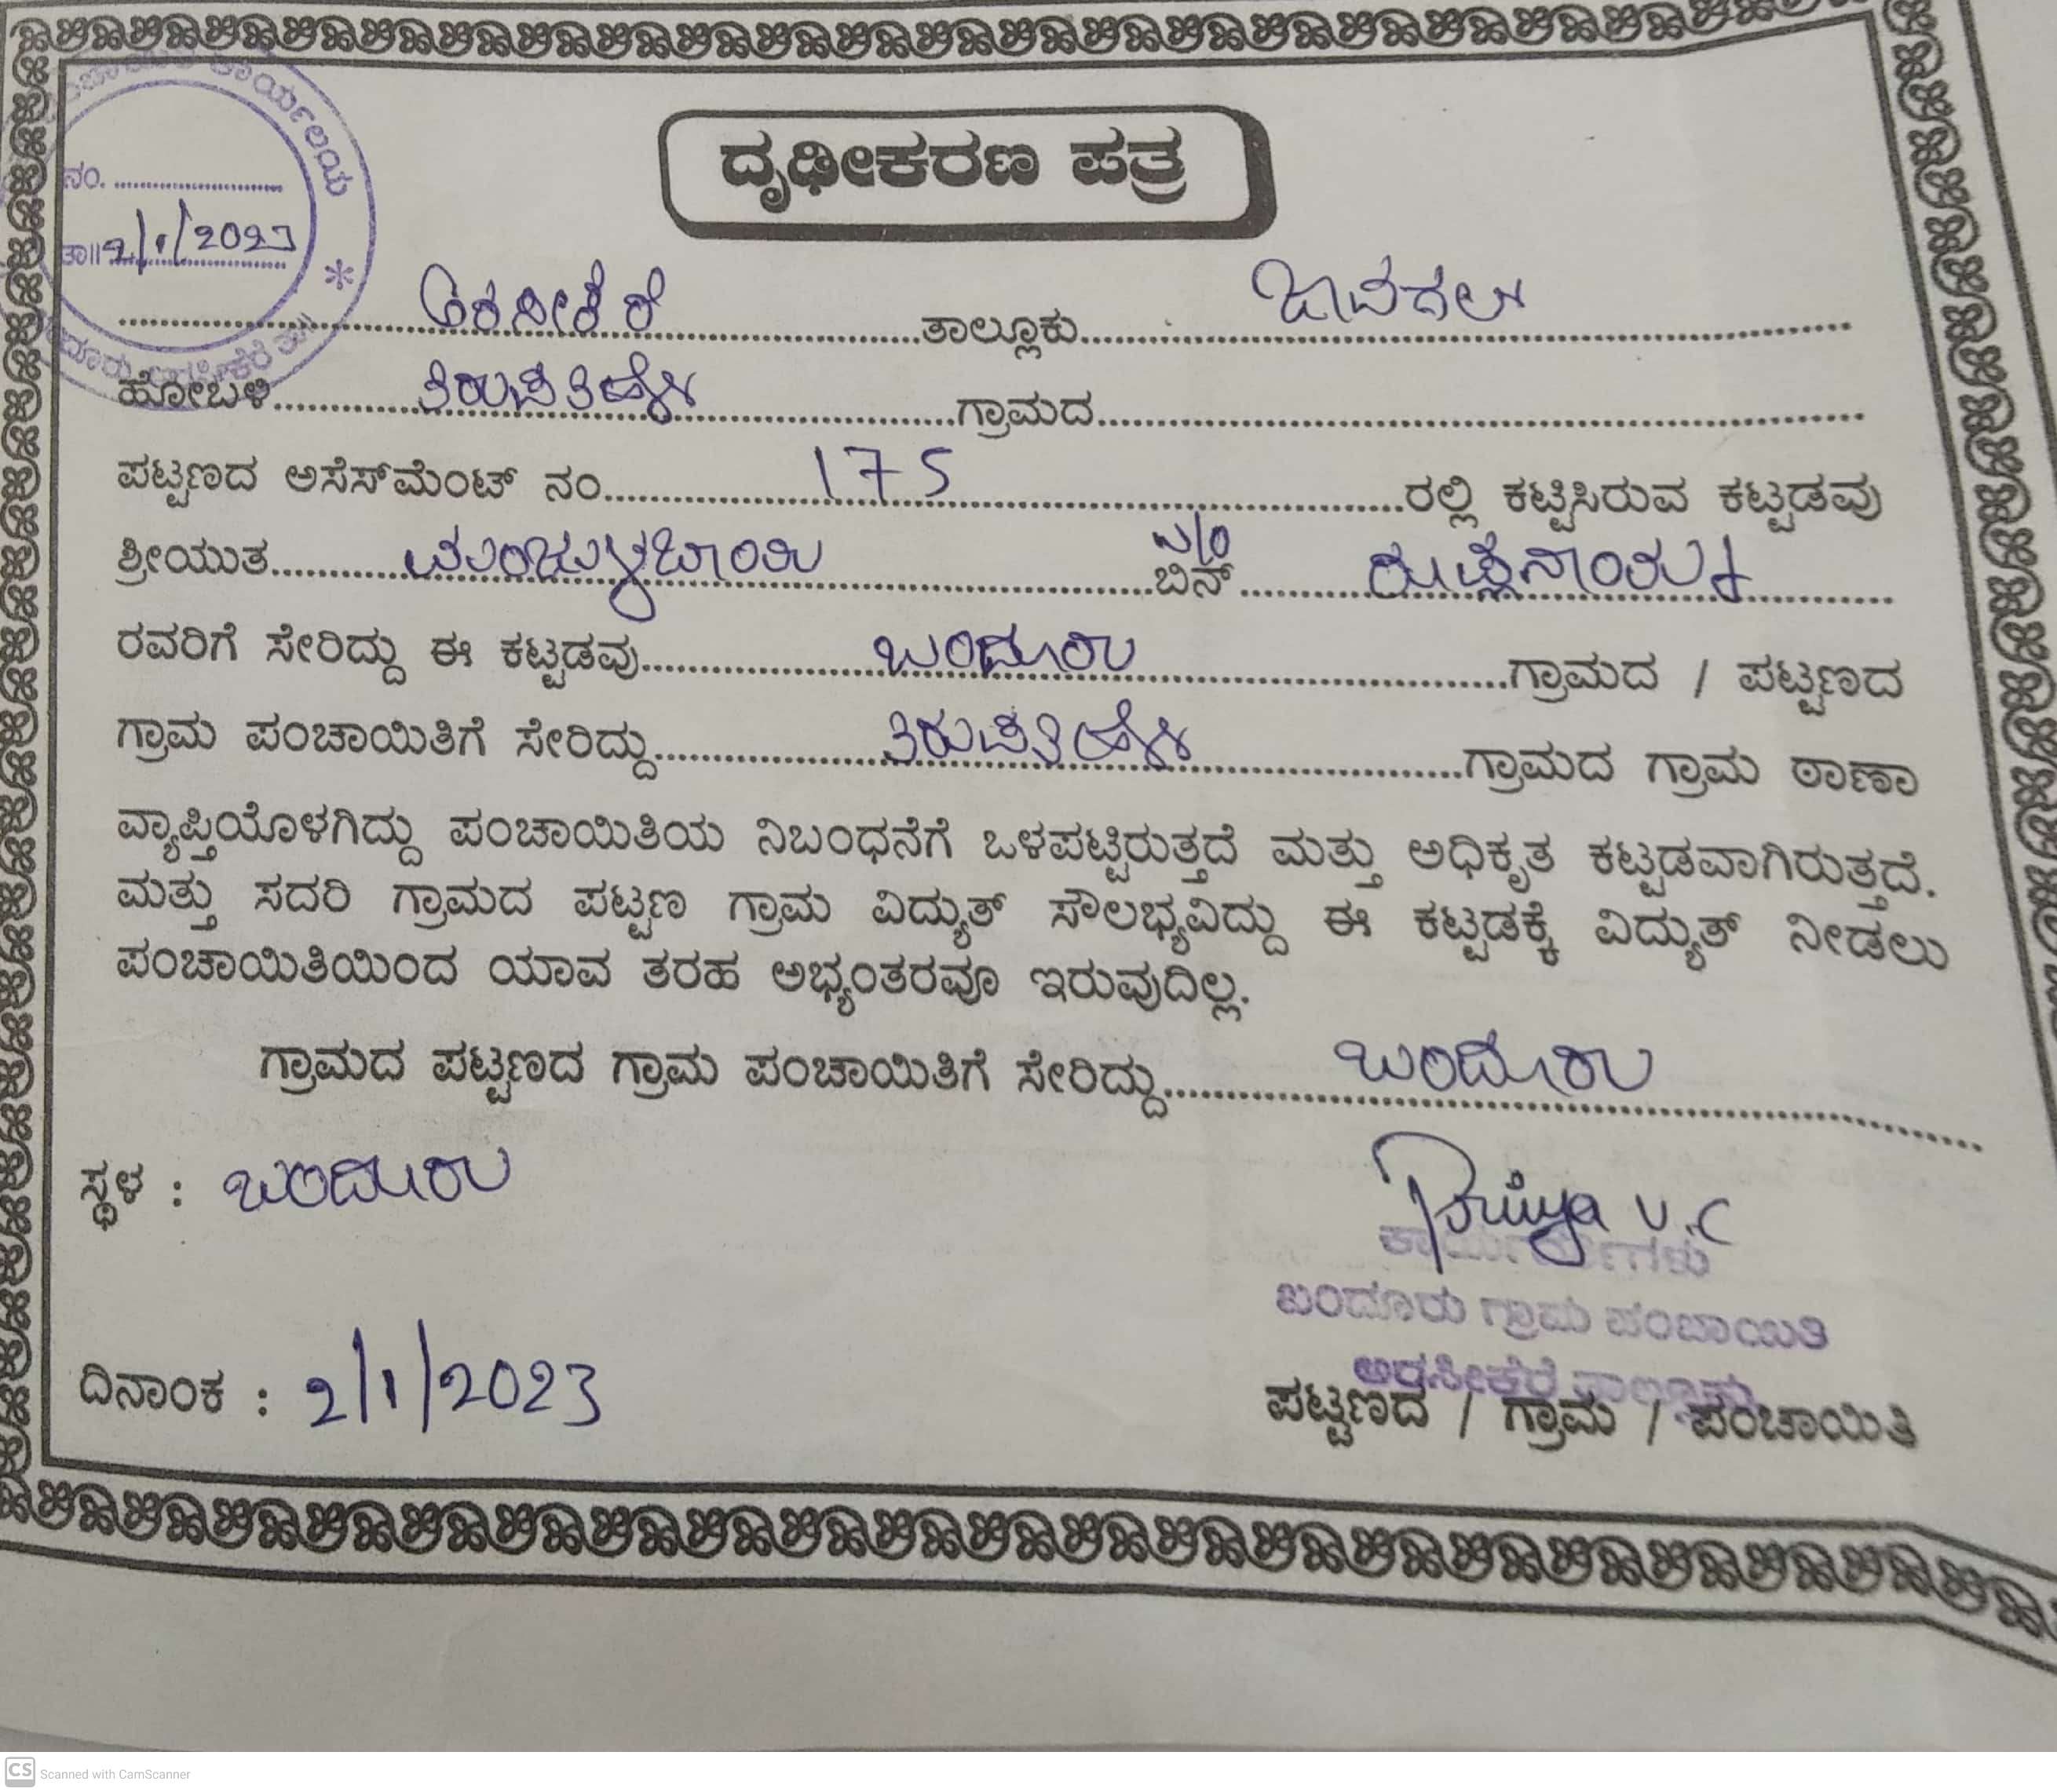 ದೃಢೀಕರಣ ಪತ್ರ
ಕಾರ್ಯಾಲಯ
ನಂ. ....................
ತಾ॥ 2/1/2023
ಅರಸೀಕೆರೆ ತಾಲ್ಲೂಕು ಜಾವಗಲ್
ಹೋಬಳಿ ತಿರುಪತಿಹಳ್ಳಿ ಗ್ರಾಮದ
ಪಟ್ಟಣದ ಅಸೆಸ್‌ಮೆಂಟ್ ನಂ. 175 ರಲ್ಲಿ ಕಟ್ಟಿಸಿರುವ ಕಟ್ಟಡವು
ಶ್ರೀಯುತ ಬಿನ್ W/o
ರವರಿಗೆ ಸೇರಿದ್ದು ಈ ಕಟ್ಟಡವು ಬಂದೂರು ಗ್ರಾಮದ / ಪಟ್ಟಣದ
ಗ್ರಾಮ ಪಂಚಾಯಿತಿಗೆ ಸೇರಿದ್ದು ತಿರುಪತಿಹಳ್ಳಿ ಗ್ರಾಮದ ಗ್ರಾಮ ಠಾಣಾ
ವ್ಯಾಪ್ತಿಯೊಳಗಿದ್ದು ಪಂಚಾಯಿತಿಯ ನಿಬಂಧನೆಗೆ ಒಳಪಟ್ಟಿರುತ್ತದೆ ಮತ್ತು ಅಧಿಕೃತ ಕಟ್ಟಡವಾಗಿರುತ್ತದೆ.
ಮತ್ತು ಸದರಿ ಗ್ರಾಮದ ಪಟ್ಟಣ ಗ್ರಾಮ ವಿದ್ಯುತ್ ಸೌಲಭ್ಯವಿದ್ದು ಈ ಕಟ್ಟಡಕ್ಕೆ ವಿದ್ಯುತ್ ನೀಡಲು
ಪಂಚಾಯಿತಿಯಿಂದ ಯಾವ ತರಹ ಅಭ್ಯಂತರವೂ ಇರುವುದಿಲ್ಲ.
ಗ್ರಾಮದ ಪಟ್ಟಣದ ಗ್ರಾಮ ಪಂಚಾಯಿತಿಗೆ ಸೇರಿದ್ದು ಬಂದೂರು
ಸ್ಥಳ : ಬಂದೂರು
Priya V.C
ಬಂದೂರು ಗ್ರಾಮ ಪಂಚಾಯಿತಿ
ಅರಸೀಕೆರೆ ತಾಲ್ಲೂಕು
ದಿನಾಂಕ : 2/1/2023
ಪಟ್ಟಣದ / ಗ್ರಾಮ / ಪಂಚಾಯಿತಿ
CS Scanned with CamScanner